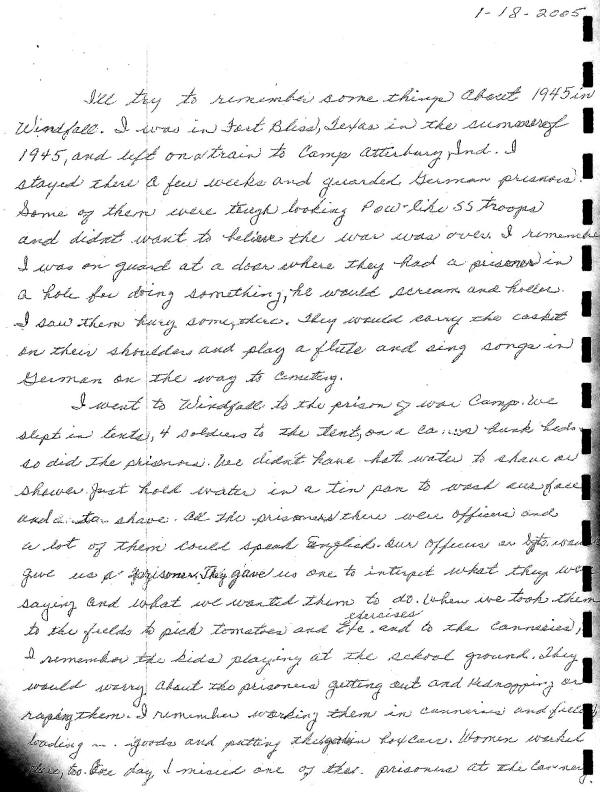 1-18-2005
I'll try to remember some things About 1945 in
Windfall. I was in Fort Bliss, Texas in the summer of
1945, and left on a train to Camp Atterbury, Ind. I
stayed there a few weeks and guarded German prisnors.
Some of them were tough looking Pow-like SS troops
and didn't want to believe the war was over. I remember
I was on guard at a door where they had a prisoner in
a hole for doing something, he would scream and holler.
I saw them bury some, there. They would carry the casket
on their shoulders and play a flute and sing songs in
German on the way to Cemetery.
I went to Windfall to the prison of war Camp. We
slept in tents, 4 soldiers to the tent, on a bunk beds
so did the prisoners. We didn't have hot water to shave or
shower. Just hold water in a tin pan to wash our face
and to shave. All the prisoners there were officers and
a lot of them could speak English. Our Officers or Sgts.
give us a prisoner. They gave us one to interpet what they
saying and what we wanted them to do. When we took them
exercises
to the fields to pick tomatoes and Etc. and to the canneries,
I remember the kids playing at the school ground. They
would worry about the prisoners getting out and Kidnapping or
raping them. I remember working them in canneries and
loading goods and putting in boxcars. Women worked
there, too. One day I missed one of the prisoners at the Cannery.